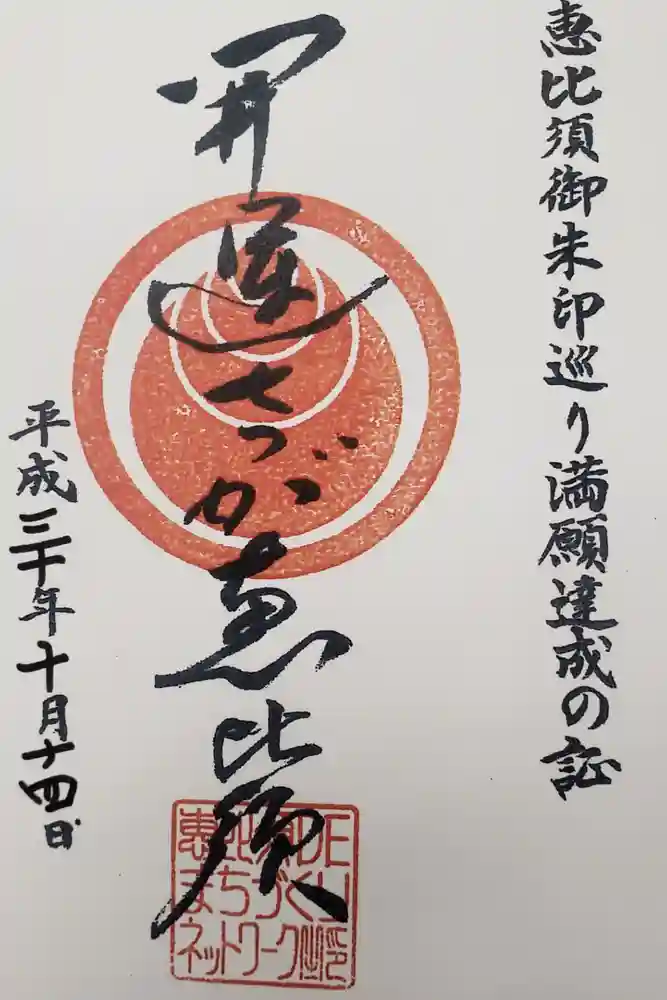 恵比須御朱印巡り満願達成の証
開運さづか恵比須
平成三十年十月十四日
恵比須DE
まちづくり
ネットワーク